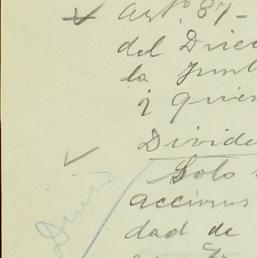 Artº 37-
del Direc
la Junt
i quien
Divide
Solo
acciones
dad de